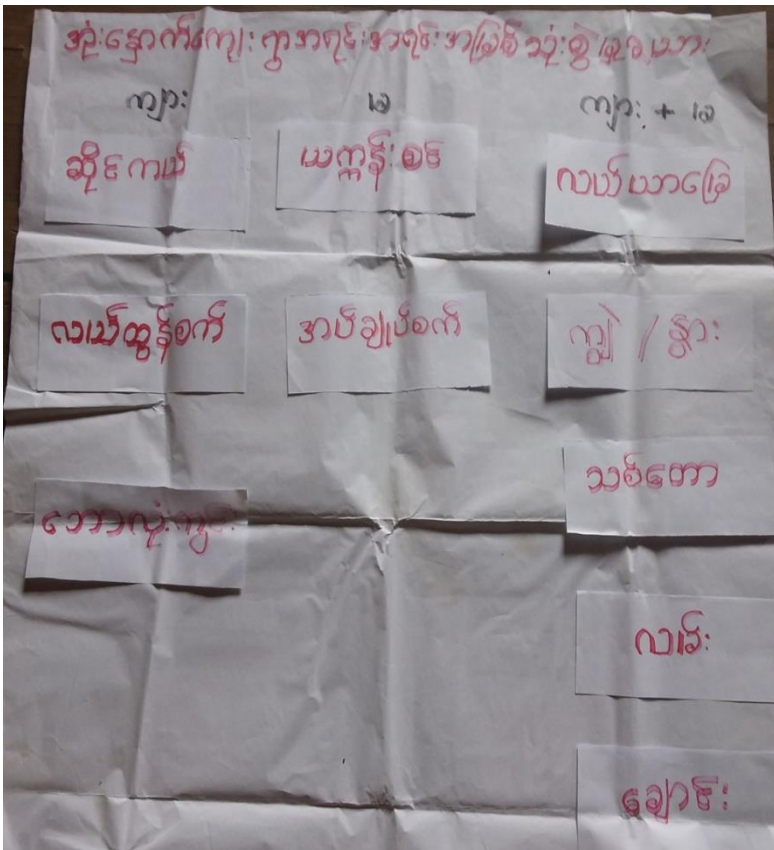 အုံးနှောက်ကျေး ရွာအရင်းအရင်းအမြစ် သုံးစွဲ
ကျား မ ကျား + မ
ဆိုင်ကယ် ယက္ကန်းစင် လယ်ယာမြေ
လယ်ထွန်စက် အပ်ချုပ်စက် ကျွဲ / နွား
သစ်တော
ဘောလုံးကွင်း
လမ်း
ချောင်း